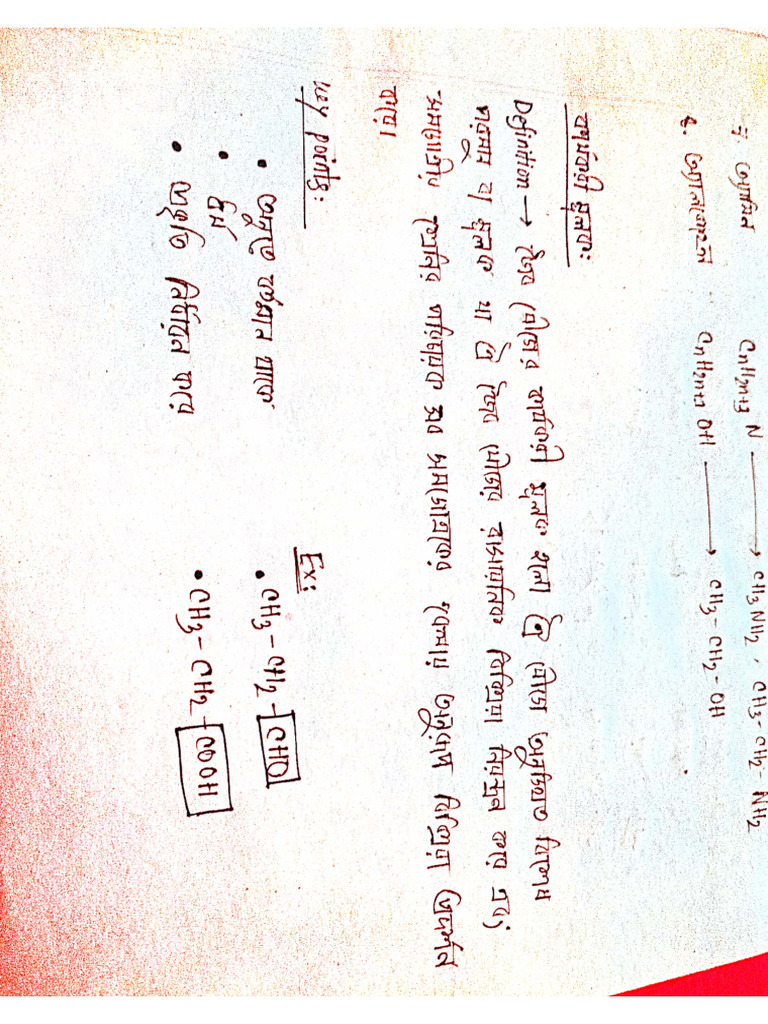 ৭. অ্যামিন CnH2n+3 N ⟶ CH3NH2, CH3-CH2-NH2
৮. অ্যালকোহল CnH2n+1 OH ⟶ CH3-CH2-OH
কার্যকরী মূলক:
Definition → জৈব যৌগের কার্যকরী মূলক হলো ঐ যৌগে অনুস্থিত বিশেষ
পরমাণু বা মূলক যা ঐ জৈব যৌগের রাসায়নিক বিক্রিয়া নিয়ন্ত্রন করে এবং
সমগোত্রীয় শ্রেনির সব সমগোত্রকের অনুরূপ বিক্রিয়া প্রদর্শন
করে।
Key points:
• অনুতে বর্তমান থাকে
• ধর্ম
• প্রকৃতি নির্ধারন করে
Ex:
• CH3-CH2-CHO
• CH3-CH2-COOH